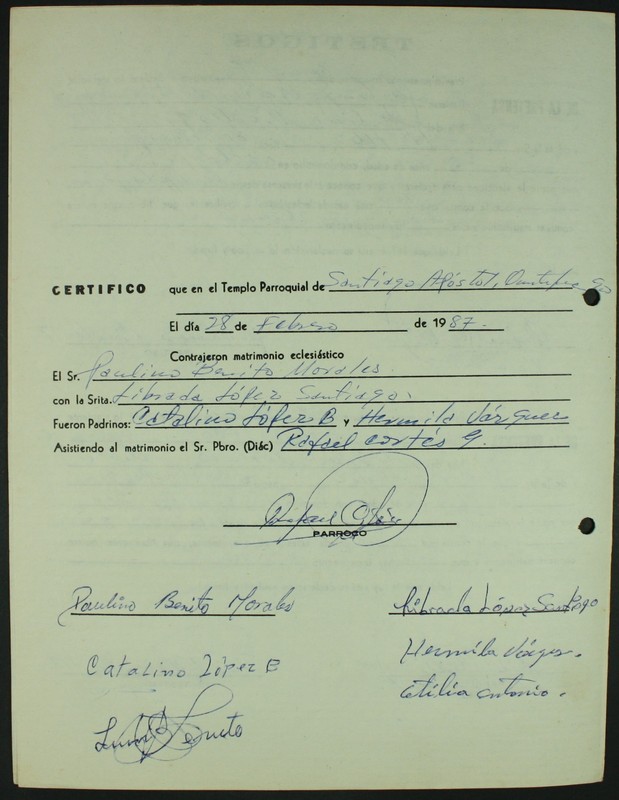 CERTIFICO que en el Templo Parroquial de Santiago Apóstol,
El día 28 de Febrero de 1987.
Contrajeron matrimonio eclesiástico
El Sr. Paulino Benito Morales.
con la Srita. Librada López Santiago.
Fueron Padrinos: Catalino López B y Hermila Vázquez
Asistiendo al matrimonio el Sr. Pbro. (Diác) Rafael Cortés G.
PARROCO
Paulino Benito Morales
Librada López Santiago
Catalino López B
Hermila Vázquez.
Otilia Antonio.